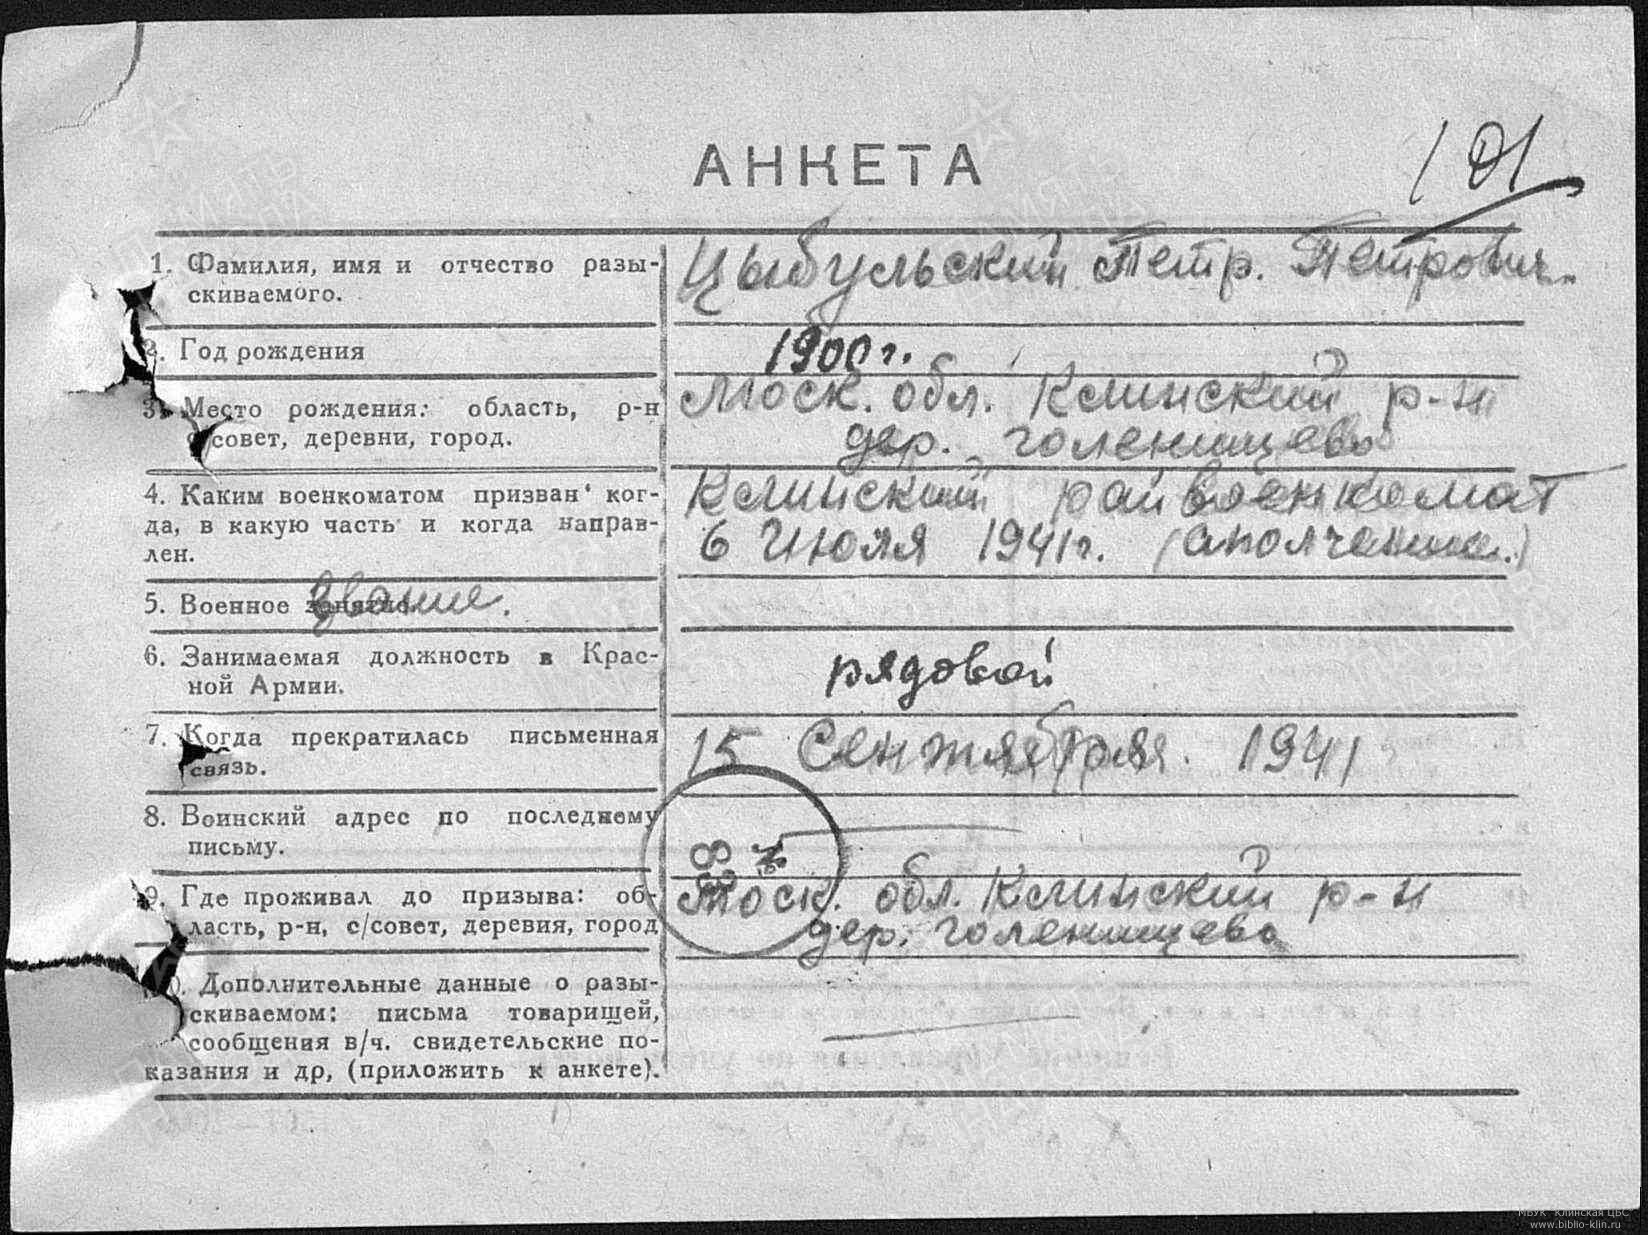 101
АНКЕТА
1. Фамилия, имя и отчество разы-
скиваемого.
Цыбульский Петр. Петрович.
2. Год рождения
1900 г.
3. Место рождения: область, р-н
с/совет, деревни, город.
Моск. обл. Клинский р-н
дер. Голенищево
4. Каким военкоматом призван ког-
да, в какую часть и когда направ-
лен.
Клинский райвоенкомат
6 Июля 1941 г. (аполчение.)
5. Военное звание.
6. Занимаемая должность в Крас-
ной Армии.
рядовой
7. Когда прекратилась письменная
связь.
15 Сентября. 1941
8. Воинский адрес по последнему
письму.
9. Где проживал до призыва: об-
ласть, р-н, с/совет, деревня, город
Моск. обл. Клинский р-н
дер. Голенищево
10. Дополнительные данные о разы-
скиваемом: письма товарищей,
сообщения в/ч. свидетельские по-
казания и др, (приложить к анкете).
МБУК "Клинская ЦБС"
www.biblio-klin.ru